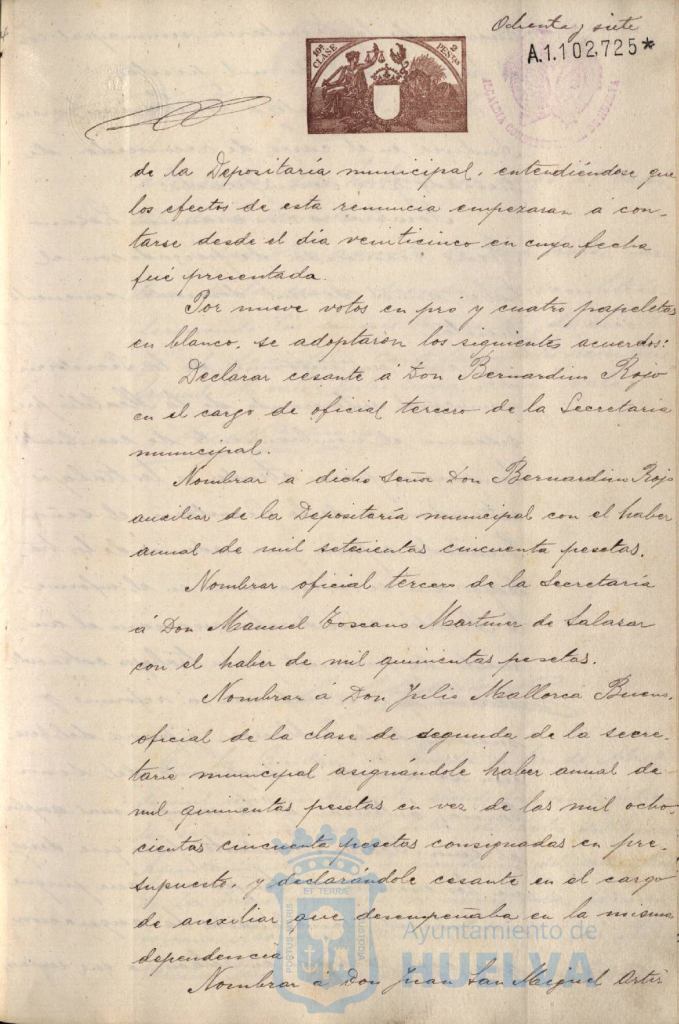 Ochenta y siete
10ª CLASE
2 PESETAS
A.1.102,725*
ALCALDIA
de la Depositaría municipal, entendiéndose que
los efectos de esta renuncia empezaran á con-
tarse desde el día veinticinco en cuya fecha
fué presentada.
Por nueve votos en pró y cuatro papeletas
en blanco, se adoptaron los siguientes acuerdos:
Declarar cesante á Don Bernardino Rojo
en el cargo de oficial tercero de la Secretaria
municipal.
Nombrar á dicho Señor Don Bernardino Rojo
auxiliar de la Depositaría municipal con el haber
anual de mil setecientas cincuenta pesetas.
Nombrar oficial tercero de la Secretaría
á Don Manuel Toscano Martinez de Salazar
con el haber de mil quinientas pesetas.
Nombrar á Don Julio Mallorca Bueno,
oficial de la clase de segunda de la secre-
taría municipal asignándole haber anual de
mil quinientas pesetas en vez de las mil ocho-
cientas cincuenta pesetas consignadas en pre-
supuesto, y declarandole cesante en el cargo
de auxiliar que desempeñaba en la misma
dependencia.
Nombrar á Don Juan San Miguel
PORTUS MARIS
ET TERRÆ
CUSTODIA
Ayuntamiento de
HUELVA